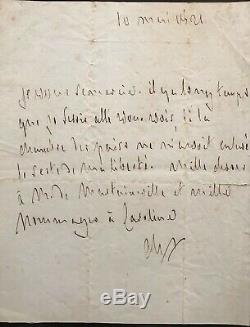 10 mai 1821
je vous remercie. il y a longtemps
que je serois allé vous voir, si la
chambre des pairs ne m'avoit enlevé
le reste de ma liberté. mille choses
à M. de et mille
hommages à
Ch